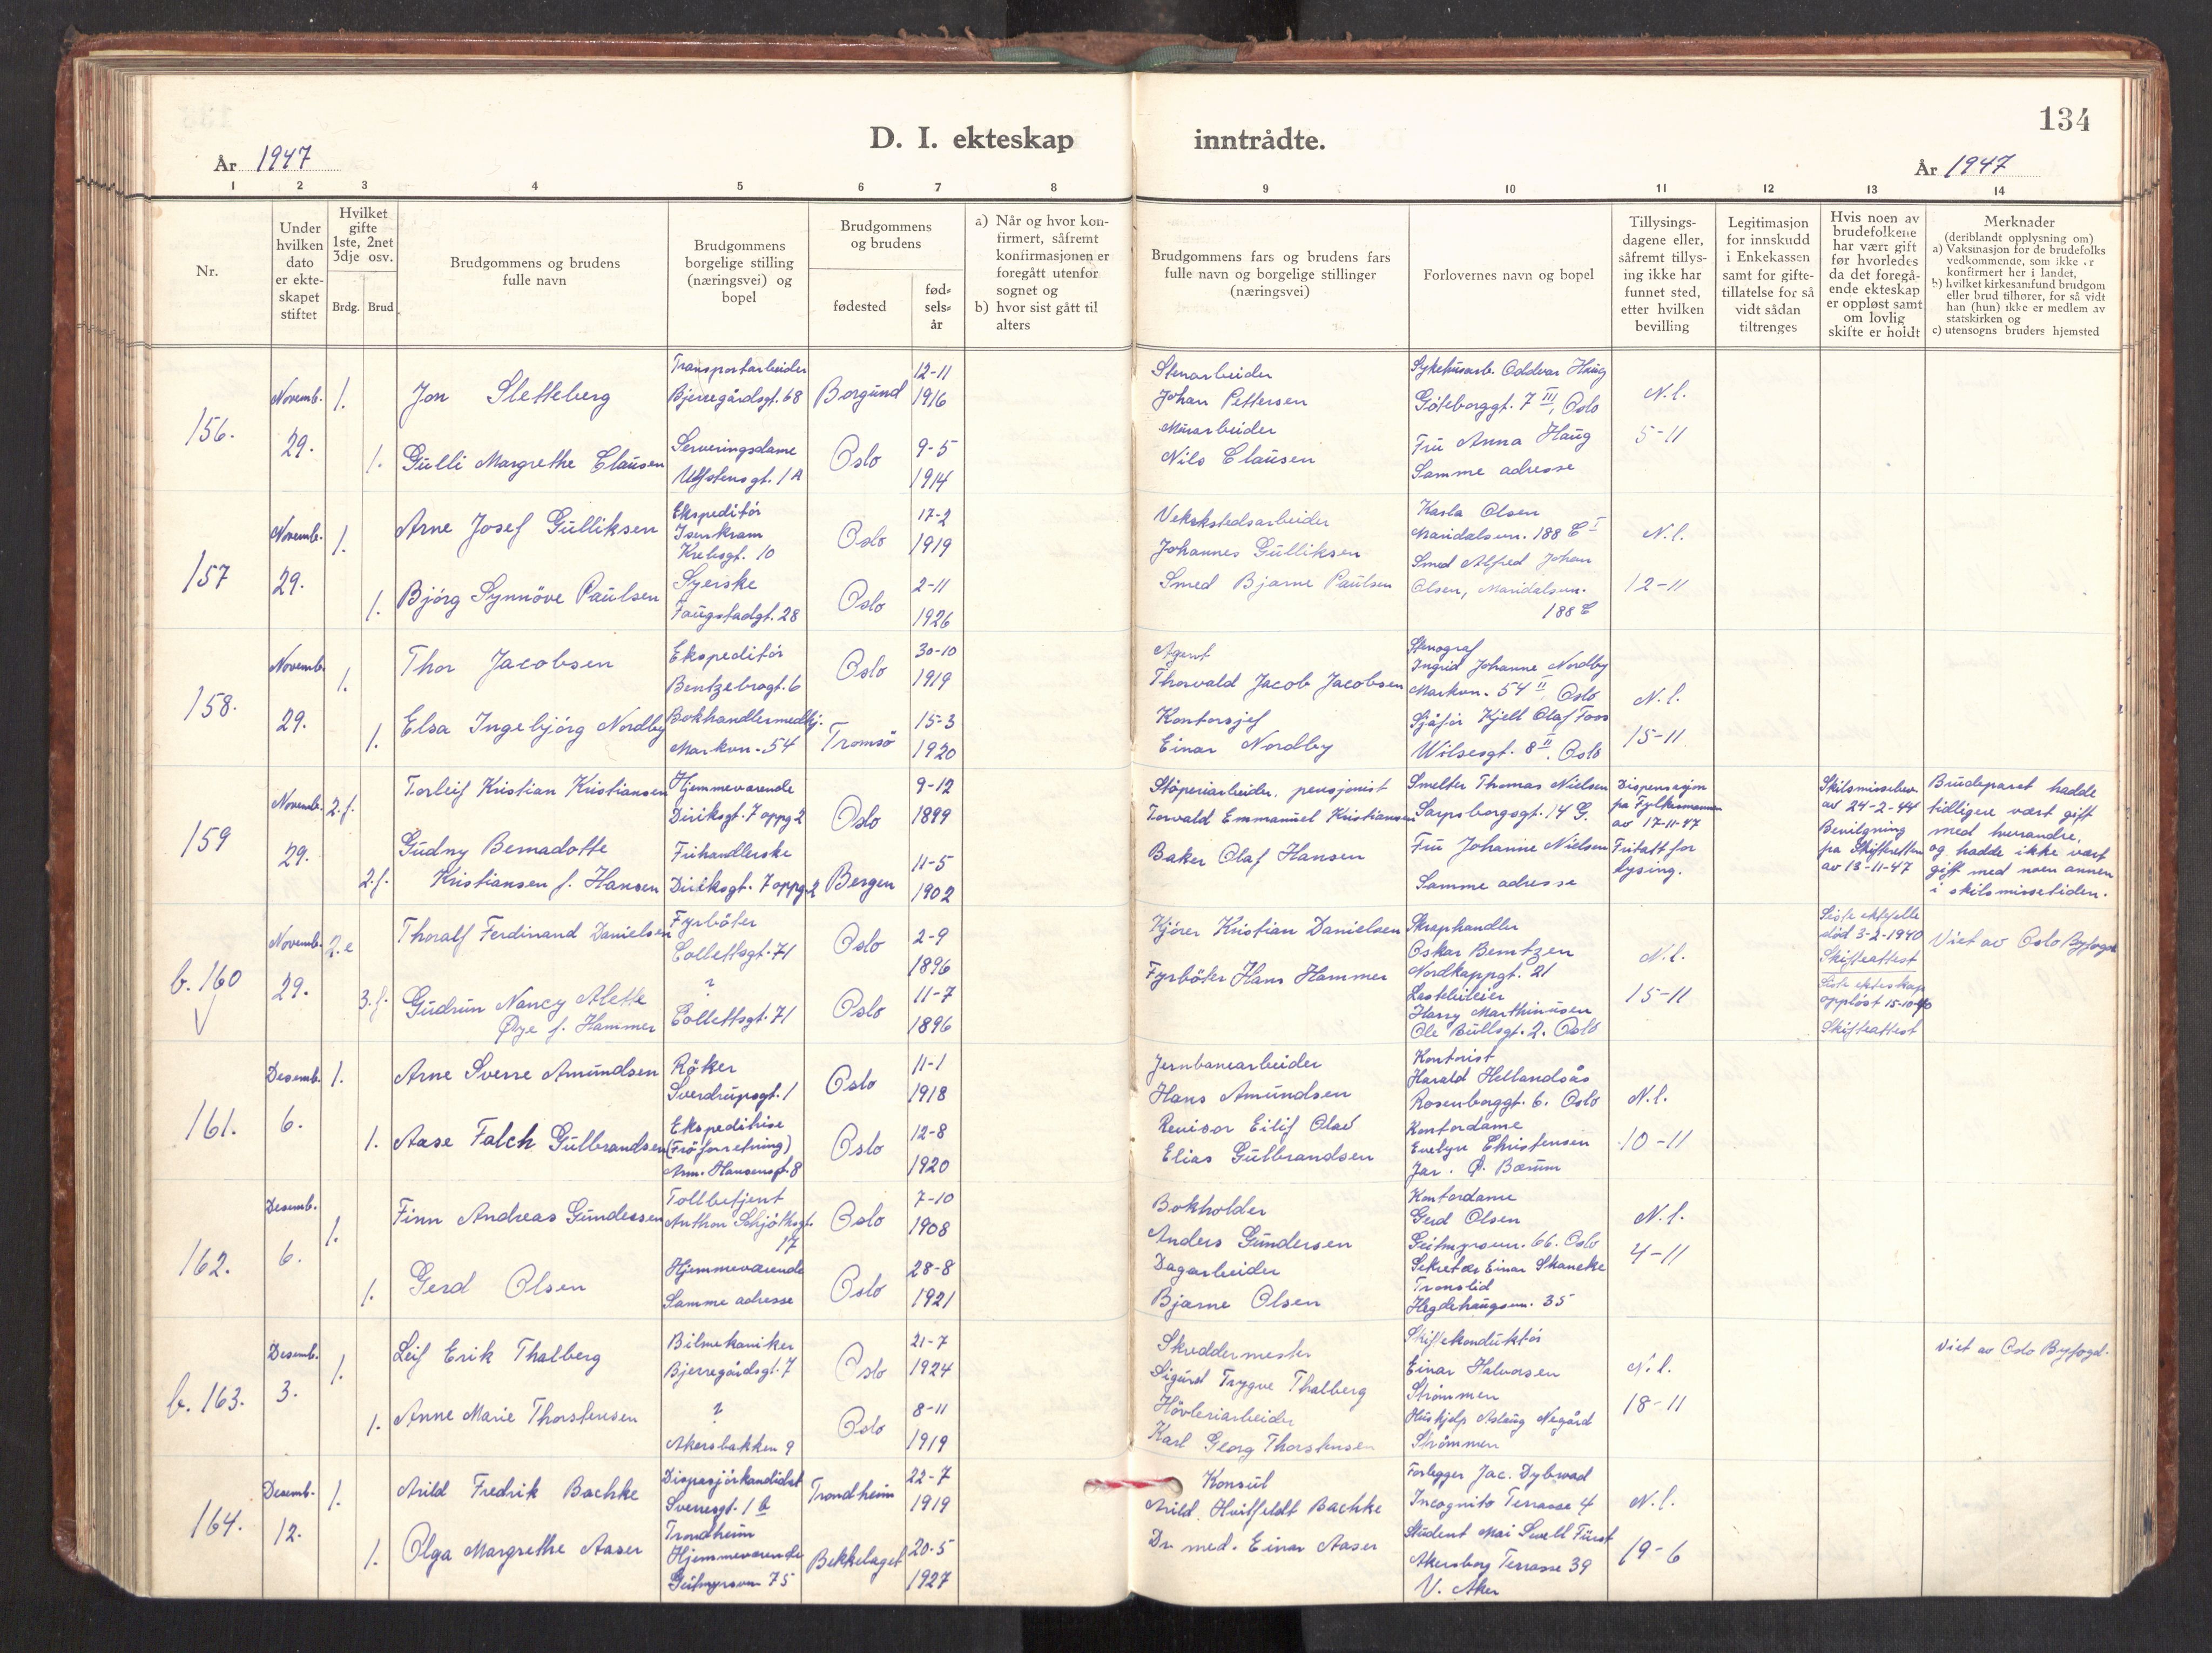 134
D. I. ekteskap inntrådte.
År 1947
År 1947
1 2 3 4 5 6 7 8 9 10 11 12 13 14
Nr.
Under hvilken dato er ekte-skapet stiftet
Hvilket gifte 1ste, 2net 3dje osv.
Brdg. Brud
Brudgommens og brudens fulle navn
Brudgommens borgelige stilling (næringsvei) og bopel
Brudgommens og brudens
fødested
fød-sels-år
a) Når og hvor kon-firmert, såfremt konfirmasjonen er foregått utenfor sognet og
b) hvor sist gått til alters
Brudgommens fars og brudens fars fulle navn og borgelige stillinger (næringsvei)
Forlovernes navn og bopel
Tillysings-dagene eller, såfremt tillys-ing ikke har funnet sted, etter hvilken bevilling
Legitimasjon for innskudd i Enkekassen samt for gifte-tillatelse for så vidt sådan tiltrenges
Hvis noen av brudefolkene har vært gift før hvorledes da det foregå-ende ekteskap er oppløst samt om lovlig skifte er holdt
Merknader
(deriblandt opplysning om)
a) Vaksinasjon for de brudefolks vedkommende, som ikke er konfirmert her i landet,
b) hvilket kirkesamfund brudgom eller brud tilhører, for så vidt han (hun) ikke er medlem av statskirken og
c) utensogns bruders hjemsted
156.
Novemb. 29.
1.
Jon Sletteberg
Transportarbeider
Bjerregårdsgt. 68
Borgund
12-11
1916
Stenarbeider
Johan Pettersen
Sykehusarb. Oddvar Haug
Göteborggt. 7 III, Oslo
N.l.
5-11
1.
Gulli Margrethe Clausen
Serveringsdame
Ulfstensgt. 1A
Oslo
9-5
1914
Murarbeider
Nils Clausen
Fru Anna Haug
Samme adresse
157
Novemb. 29.
1.
Arne Josef Gulliksen
Ekspeditör
Isenkram
Krebsgt. 10
Oslo
17-2
1919
Vekskstedsarbeider
Johannes Gulliksen
Karla Olsen
Maridalsvn. 188 C I
N.l.
12-11
1.
Bjórg Synnöve Paulsen
Syerske
Faugstadgt. 28
Oslo
2-11
1926
Smed Bjarne Paulsen
Smed Alfred Johan
Olsen, Maridalsvn.
188 C
158.
Novemb. 29.
1.
Thor Jacobsen
Ekspeditör
Bentzebrogt. 6
Oslo
30-10
1919
Agent
Thorvald Jacob Jacobsen
Stenograf
Ingrid Johanne Nordby
Markvn. 54 II, Oslo
N.l.
15-11
1.
Elsa Ingebjórg Nordby
Bokhandlermedhj.
Markvn. 54
Tromsö
15-3
1920
Kontorsjef
Einar Nordby
Sjåför Kjell Olaf Foss
Wilsesgt. 8 II, Oslo
159
Novemb. 29.
2.f.
Torleif Kristian Kristiansen
Hjemmeværende
Diriksgt. 7 oppg 2
Oslo
9-12
1899
Stöperiarbeider, pensjonist
Torvald Emmanuel Kristiansen
Smelter Thomas Nielsen
Sarpsborgsgt. 14 G.
Dispensasjon
fra Fylkesmannen
av 17-11-47
Fritatt for
lysing.
Skilsmissebev.
av 24-2-44
Bevilgning
fra Skifteretten
av 13-11-47
Brudeparet hadde
tidligere vært gift
med hverandre,
og hadde ikke vært
gift med noen annen
i skilsmissetiden.
2.f.
Gudny Bernadotte
Kristiansen f. Hansen
Fruhandlerske
Diriksgt. 7 oppg 2
Bergen
11-5
1902
Baker Olaf Hansen
Fru Johanne Nielsen
Samme adresse
b. 160
Novemb. 29.
2.e
Thoralf Ferdinand Danielsen
Fyrböter
Collettsgt. 71
Oslo
2-9
1896
Kjörer Kristian Danielsen
Skraphandler
Oskar Berntzen
Nordkappgt. 21
N.l.
15-11
Siste ektefelle
död 3-2-1940
Skifteattest
Viet av Oslo Byfogd
3.f.
Gudrun Nancy Alette
Øye f. Hammer
?
Collettsgt. 71
Oslo
11-7
1896
Fyrböter Hans Hammer
Harry Marthinusen
Ole Bullsgt. 2. Oslo
Siste ekteskap
opplöst 15-10-40
Skifteattest
161.
Desemb. 6.
1.
Arne Sverre Amundsen
Röker
Sverdrupsgt. 1
Oslo
11-1
1918
Jernbanearbeider
Hans Amundsen
Kontorist
Harald Hellandsås
Rosenborggt. 6. Oslo
N.l.
10-11
1.
Aase Falch Gulbrandsen
Ekspeditrise
(Fröforretning)
Arm. Hansensgt. 8
Oslo
12-8
1920
Revisor Eilif Olav
Elias Gulbrandsen
Kontordame
Evelyn Christensen
Jar. Ø. Bærum
162.
Desemb. 6.
1.
Finn Andreas Gundersen
Tollbetjent
Anthon Schjöthsgt.
17
Oslo
7-10
1908
Bokholder
Anders Gundersen
Kontordame
Gerd Olsen
Geitmyrsvn. 66. Oslo
N.l.
4-11
1.
Gerd Olsen
Hjemmeværende
Samme adresse
Oslo
28-8
1921
Dagarbeider
Bjarne Olsen
Sekretær Einar Skancke
Tronslid
Hegdehaugsvn. 35
b. 163.
Desemb. 3.
1.
Leif Erik Thalberg
Bilmekaniker
Bjerregårdsgt. 7
Oslo
21-7
1924
Skreddermester
Sigurd Trygve Thalberg
Skiftekonduktör
Einar Halvorsen
Strömmen
N.l.
18-11
Viet av Oslo Byfogd.
1.
Anne Marie Thorstensen
?
Akersbakken 9
Oslo
8-11
1919
Hövleriarbeider
Karl Georg Thorstensen
Hushjelp Aslaug Negård
Strömmen
164.
Desemb. 12.
1.
Arild Fredrik Bachke
Dispasjörkandidat
Sverresgt. 1 b
Trondheim
Trondheim
22-7
1919
Konsul
Arild Hvitfeldt Bachke
Forlegger Jac. Dybwad
Incognito Terrasse 4
N.l.
19-6
1.
Olga Margrethe Aaser
Hjemmeværende
Geitmyrsvn 75
Bekkelaget
20-5
1927
Dr. med. Einar Aaser
Student Mai Sewell Fürst
Akersborg Terrasse 39
V. Aker